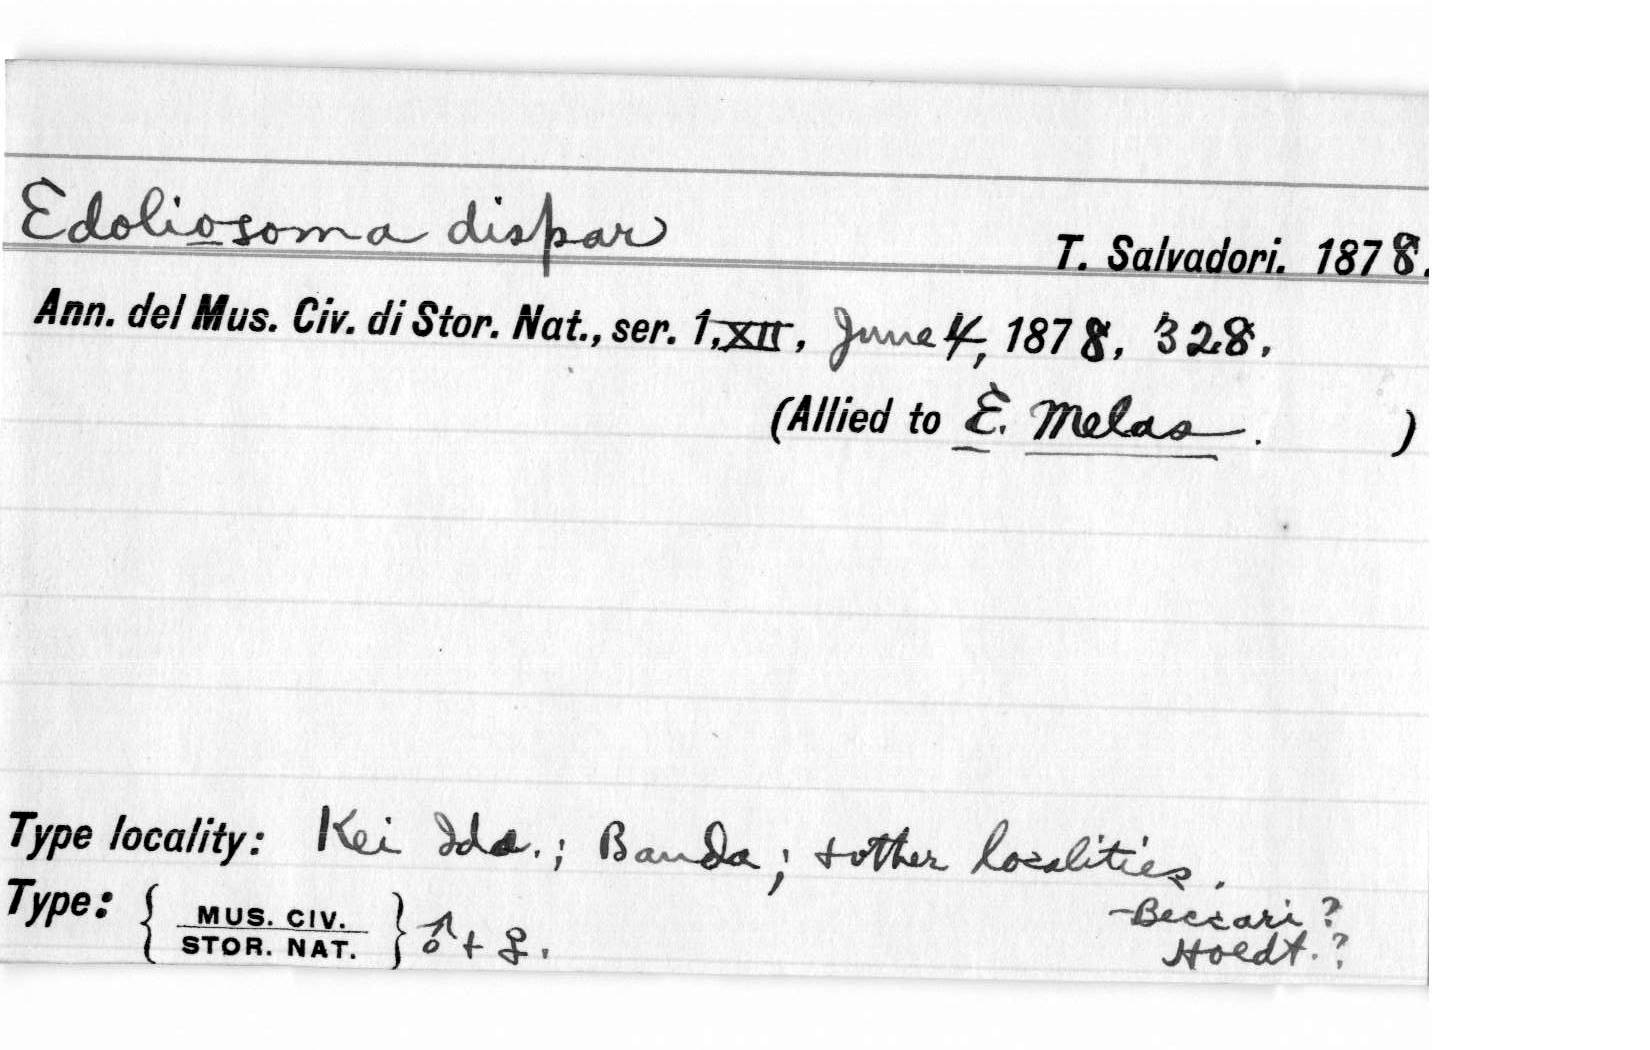 Edoliosoma dispar
T. Salvadori. 1878.
Ann. del Mus. Civ. di Stor. Nat., ser. 1, XII, June 4, 1878, 328.
(Allied to E. Melas. )
Type locality: Kei Ids.; Banda; + other localities.
Type: { MUS. CIV. STOR. NAT. } ♂ + ♀.
-Beccari?
Hoedt.?